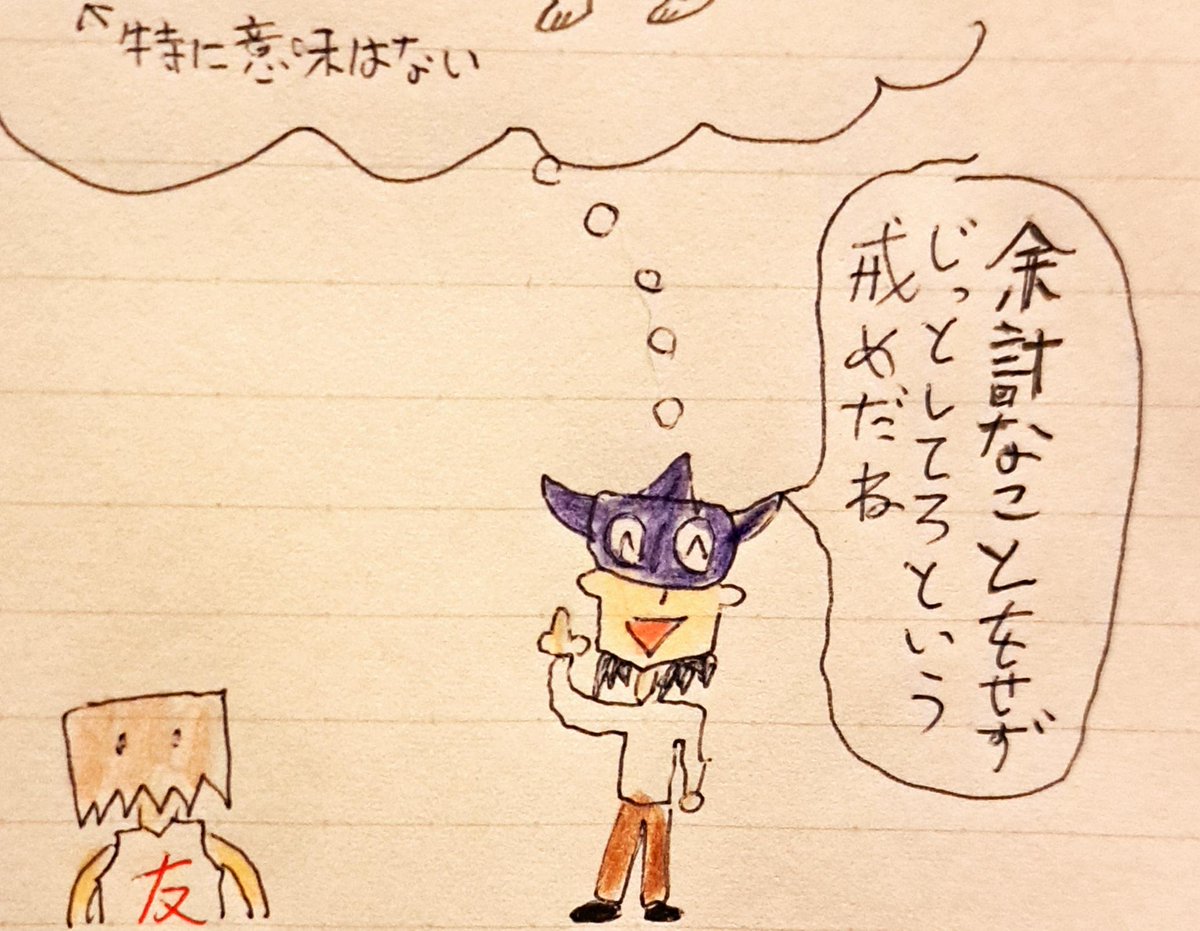 特に意味はない
余計なことをせず
じっとしてろという
戒めだね
友